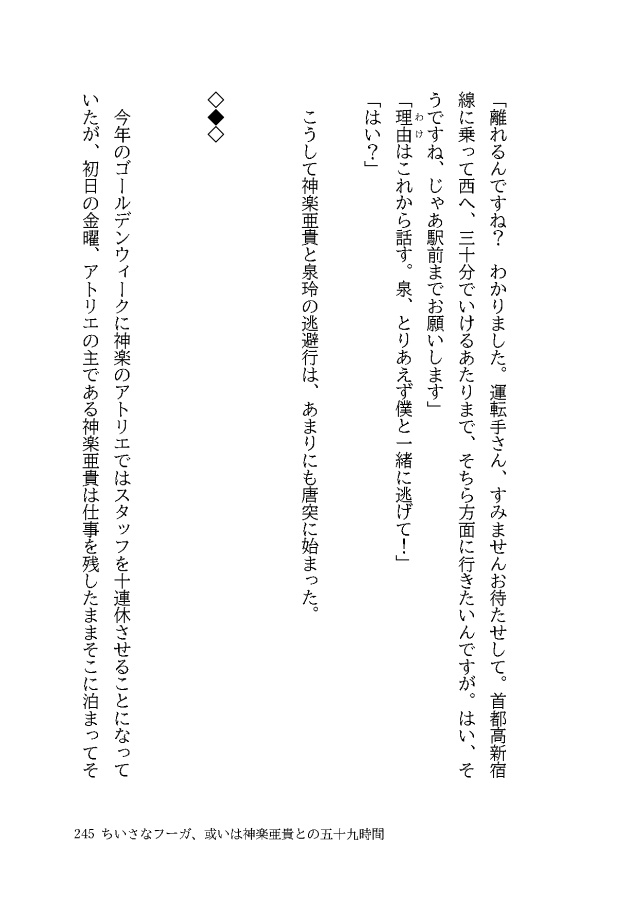 「離れるんですね？　わかりました。運転手さん、すみませんお待たせして。首都高新宿
線に乗って西へ、三十分でいけるあたりまで、そちら方面に行きたいんですが。はい、そ
うですね、じゃあ駅前までお願いします」
「理由はこれから話す。泉、とりあえず僕と一緒に逃げて！」
わけ
「はい？」
こうして神楽亜貴と泉玲の逃避行は、あまりにも唐突に始まった。
◇◆◇
今年のゴールデンウィークに神楽のアトリエではスタッフを十連休させることになって
いたが、初日の金曜、アトリエの主である神楽亜貴は仕事を残したままそこに泊まってそ
245 ちいさなフーガ、或いは神楽亜貴との五十九時間